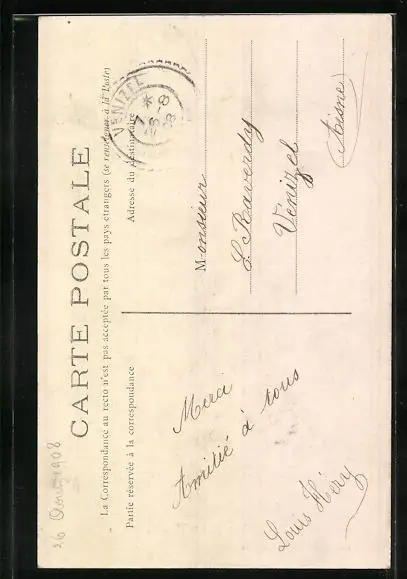 CARTE POSTALE
La Correspondance au recto n'est pas acceptée par tous les pays étrangers (se renseigner à la Poste)
Partie réservée à la correspondance
Adresse du destinataire
26 Août 1908
VENIZEL
Merci
Amitié à tous
Louis Héry
Monsieur
L. Raverdy
Venizel
(Aisne)